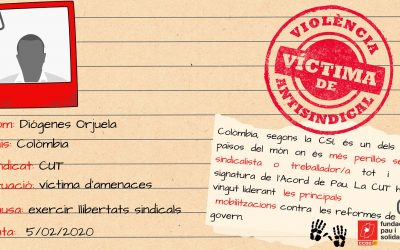 VIOLÈNCIA
VÍCTIMA
DE
ANTISINDICAL
om: Diògenes Orjuela
ís: Colòmbia
ndicat: CUT
uació: víctima d'amenaces
usa: exercir llibertats sindicals
ata: 5/02/2020
Colòmbia, segons la CSI, és un dels
països del món on és més perillós se
sindicalista o treballador/a tot i
signatura de l'Acord de Pau. La CUT h
vingut liderant les principals
mobilitzacions contra les reformes de
govern.
ccoo
fundac
pau i
solida